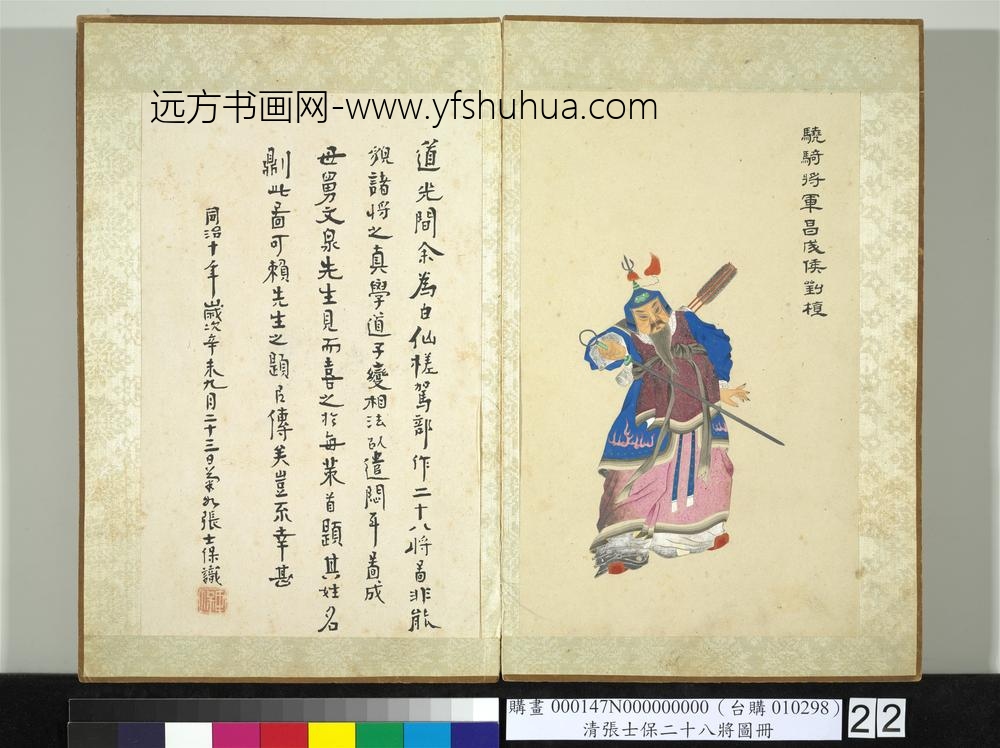 远方书画网-www.yfshuhua.com
驍騎將軍昌成侯劉植
道光間余為白仙槎駕部作二十八將啚非能
貌諸將之真學道子變相法以遣悶耳啚成
母舅文泉先生見而喜之於每葉首題其姓名
劘此啚可賴先生之題以傳矣豈不幸甚
同治十年歲次辛未九月二十三日菊如張士保識
購畫 000147N000000000（台購 010298）
清張士保二十八將圖冊
22